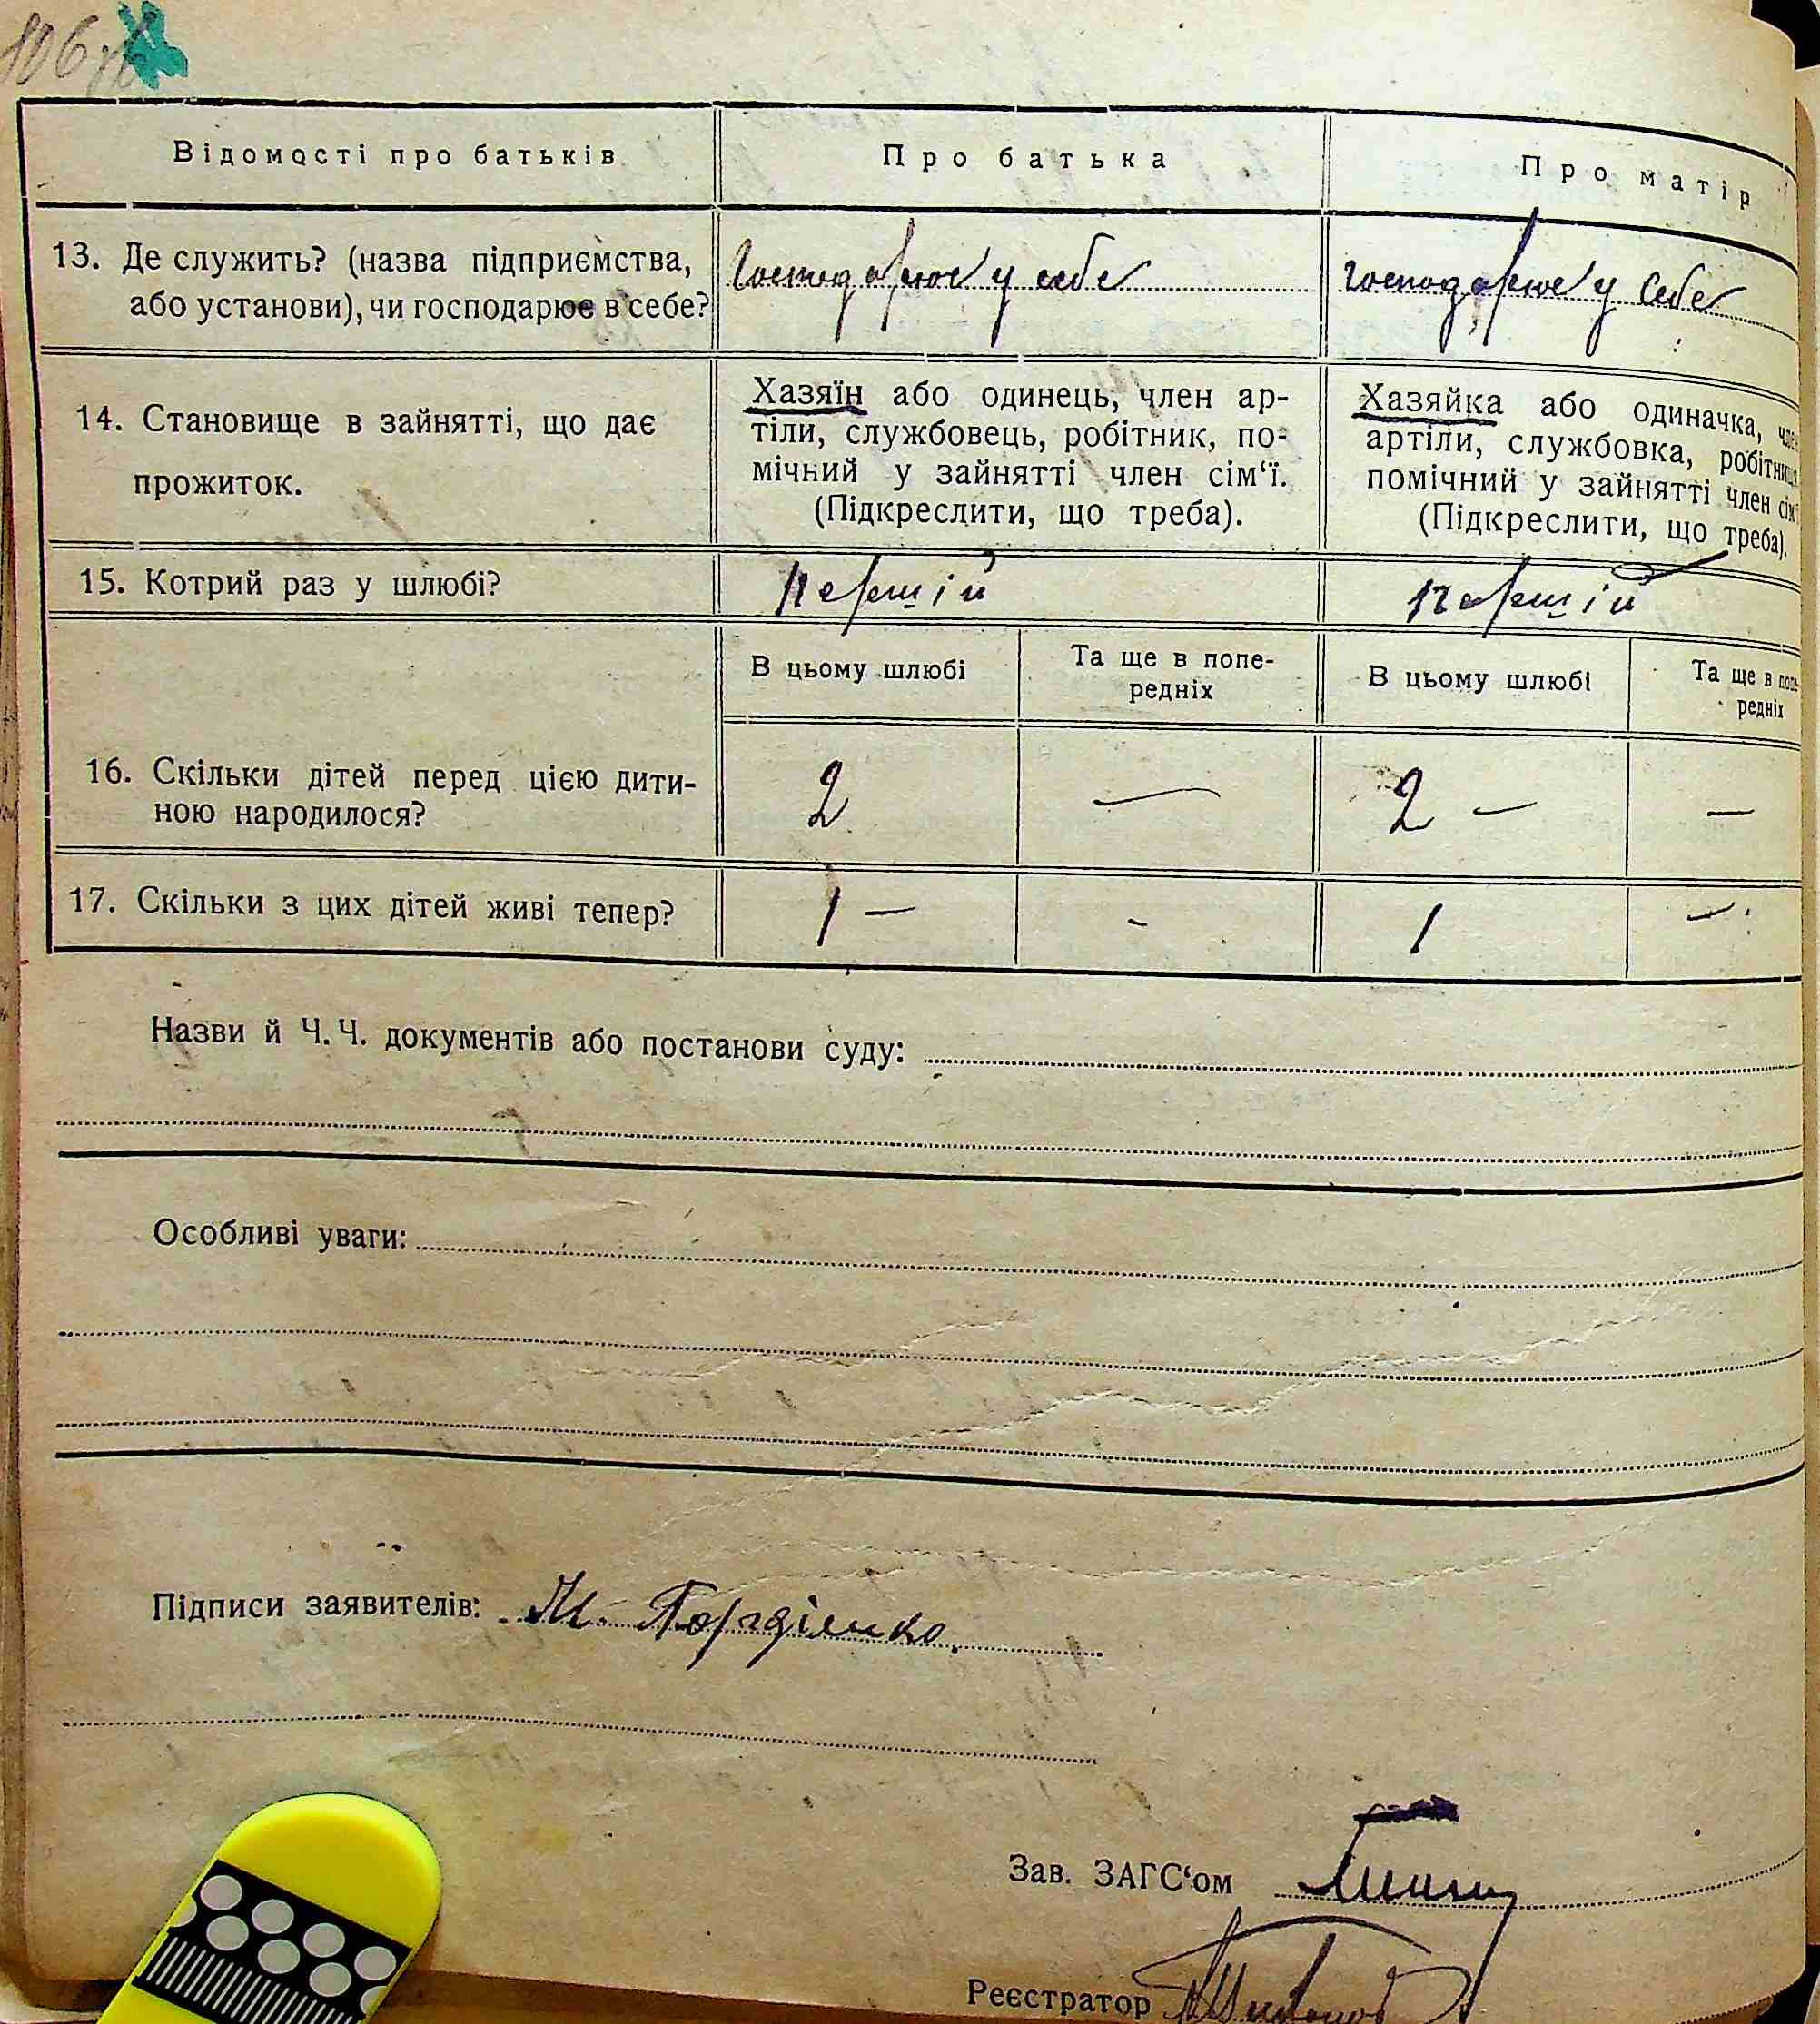 106
Відомості про батьків
Про батька
Про матір
13. Де служить? (назва підприємства,
або установи), чи господарює в себе?
Господарює у себе
Господарює у себе
14. Становище в зайнятті, що дає
прожиток.
Хазяїн або одинець, член ар-
тіли, службовець, робітник, по-
мічний у зайнятті член сім‘ї.
(Підкреслити, що треба).
Хазяйка або одиначка, член
артіли, службовка, робітниця
помічний у зайнятті член сім‘ї
(Підкреслити, що треба).
15. Котрий раз у шлюбі?
Першій
Першій
В цьому шлюбі
Та ще в попе-
редніх
В цьому шлюбі
Та ще в попе-
редніх
16. Скільки дітей перед цією дити-
ною народилося?
2
—
2 —
—
17. Скільки з цих дітей живі тепер?
1 —
-
1
—
Назви й Ч. Ч. документів або постанови суду:
Особливі уваги:
Підписи заявителів:
Зав. ЗАГС‘ом
Реєстратор